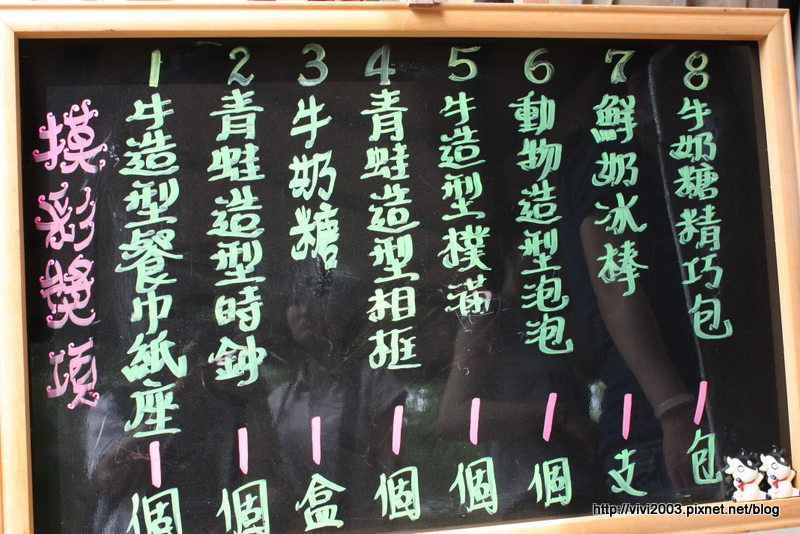 摸彩獎項
1 牛造型餐巾紙座 1個
2 青蛙造型時鐘 1個
3 牛奶糖 1盒
4 青蛙造型相框 1個
5 牛造型撲滿 1個
6 動物造型泡泡 1個
7 鮮奶冰棒 1支
8 牛奶糖精巧包 1包
http://vivi2003.pixnet.net/blog